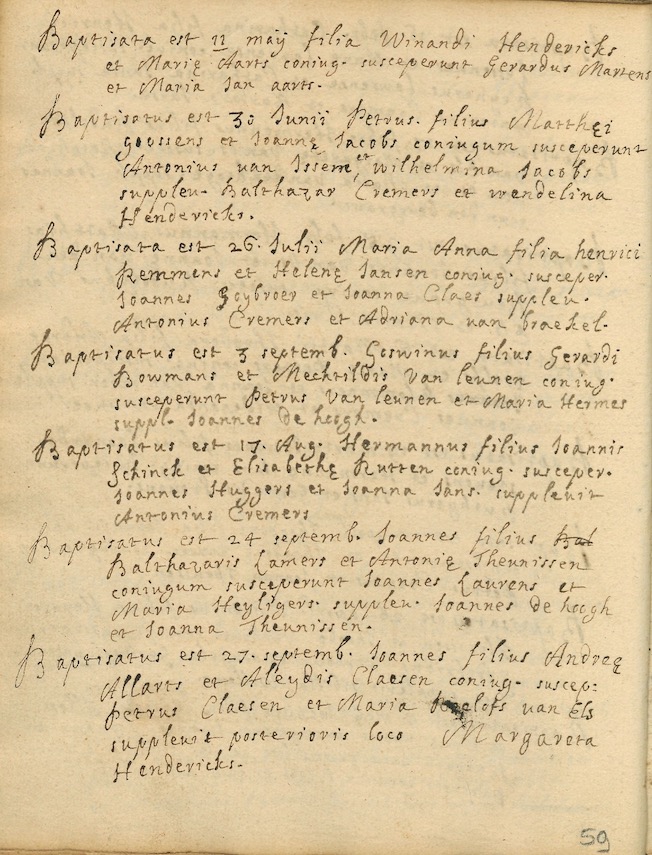 Baptisata est 11 maÿ filia Winandi Hendericks
et Marię Aarts coniug. susceperunt Gerardus Martens
et Maria Jan aarts.
Baptisatus est 30 Junii Petrus. filius Matthęi
goossens et Joannę Jacobs coniugum susceperunt
Antonius van Issem et wilhelmina Jacobs
supplev. Balthazar Cremers et wendelina
Hendericks.
Baptisata est 26. Julii Maria Anna filia henrici
Remmens et Helenę Jansen coniug. susceper.
Joannes Goybroer et Joanna Claes supplev.
Antonius Cremers et Adriana van braekel.
Baptisatus est 3 septemb. Goswinus filius Gerardi
Bowmans et Mechtildis Van leunen coniug.
susceperunt Petrus Van leunen et Maria Hermes
suppl. Joannes de hoogh.
Baptisatus est 17. Aug. Hermannus filius Joannis
Schinck et Elisabethę Rutten coniug. susceper.
Joannes Huggers et Joanna Jans. supplevit
Antonius Cremers
Baptisatus est 24 septemb. Joannes filius Bal
Balthazaris Lamers et Antonię Theunissen
coniugum susceperunt Joannes Laurens et
Maria Heyligers. supplev. Joannes de hoogh
et Joanna Theunissen.
Baptisatus est 27. septemb. Joannes filius Andreę
Allarts et Aleydis Claesen coniug. suscep:
Petrus Claesen et Maria Roelofs van Els
supplevit posterioris loco Margareta
Hendericks.
59